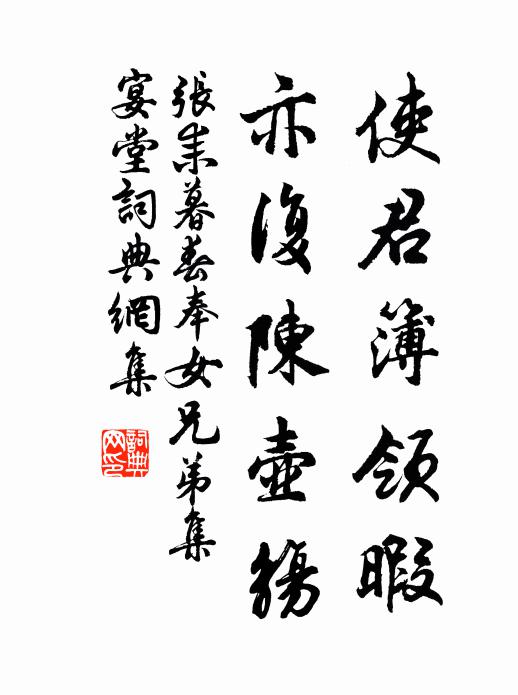 使君簿領暇
亦復陳壺觴
張耒暮春奉女兄弟集
宴堂詞典網集
詞典網印